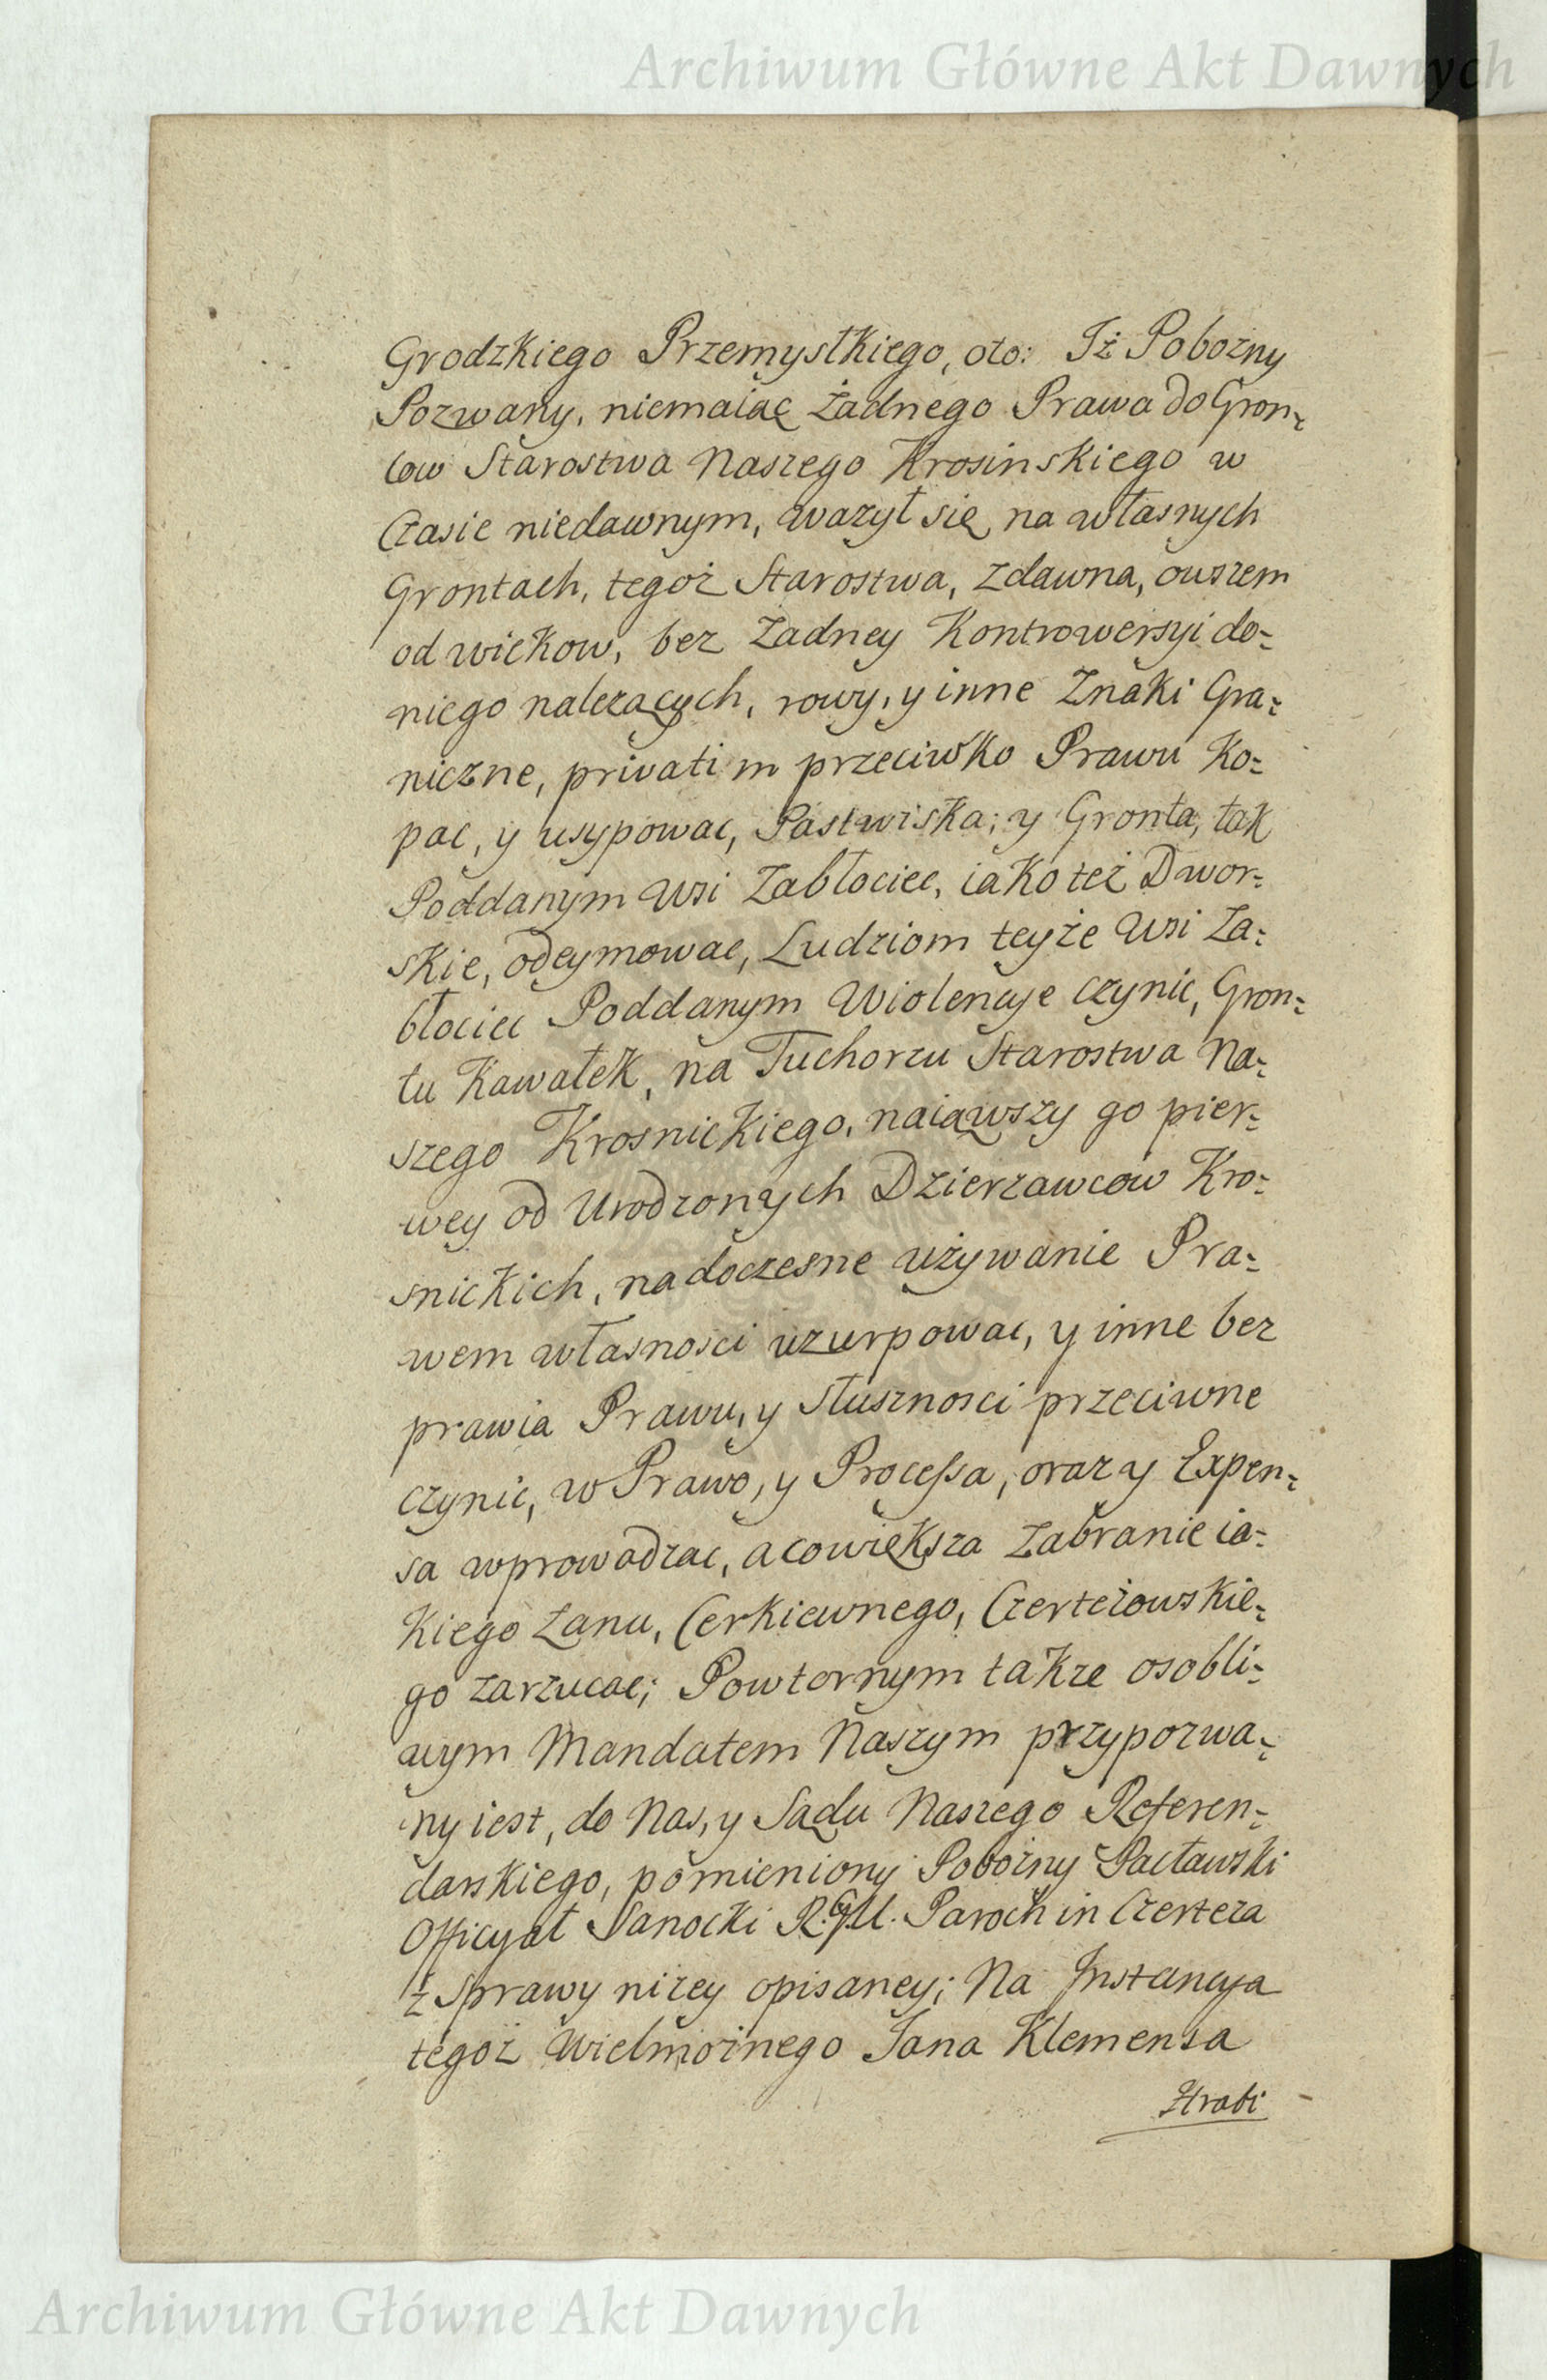 Archiwum Główne Akt Dawnych
Grodzkiego Przemyslkiego, oto: Iż Pobozny
Pozwany, niemaiąc żadnego Prawa do Gron:
tow Starostwa Naszego Krosinskiego w
Czasie niedawnym, wazył się na własnych
Grontach, tegoż Starostwa, zdawna, owszem
od wiekow, bez Zadney Kontrowersyi do:
niego nalezących, rowy, y inne Znaki Gra:
niczne, privatim przeciwko Prawu Ko:
pac, y usypowac, Pastwiska; y Gronta, tak
Poddanym Wsi Zabłociec, iako też Dwor:
skie, odeymowac, Ludziom teyże Wsi Za:
błociec Poddanym Wiolencye czynic, Gron:
tu Kawałek, na Tuchorzu Starostwa Na:
szego Krosnickiego, naiąwszy go pier:
wey od Urodzonych Dzierzawcow Kro:
snickich, nadoczesne używanie Pra:
wem własnosci uzurpowac, y inne bez
prawia Prawu, y Słusznosci przeciwne
czynic, w Prawo, y Processa, oraz y Expen:
sa wprowadzac, acowiększa Zabranie ia:
kiego Łanu, Cerkiewnego, Czerteżowskie:
go zarzucac; Powtornym takze osobli:
wym Mandatem Naszym przypozwa:
ny iest, do Nas, y Sądu Naszego Referen:
darskiego, pomieniony Pobożny Pacławski
Officyał Sanocki R.G.U. Paroch in Czerteza
z Sprawy nizey opisaney; Na Instancya
tegoż Wielmożnego Jana Klemensa
Hrabi
Archiwum Główne Akt Dawnych